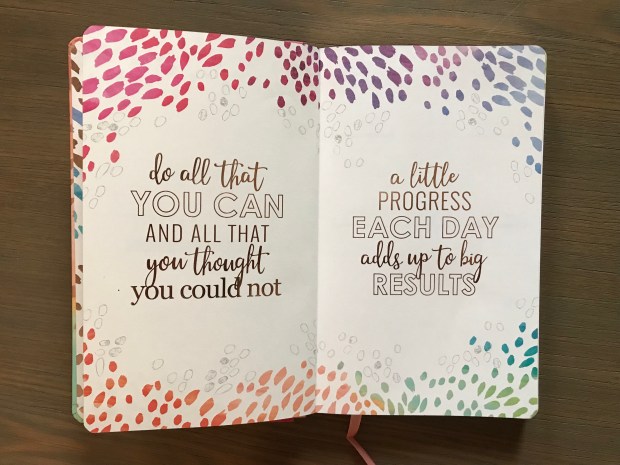 do all that
YOU CAN
AND ALL THAT
you thought
you could not
a little
PROGRESS
EACH DAY
adds up to big
RESULTS